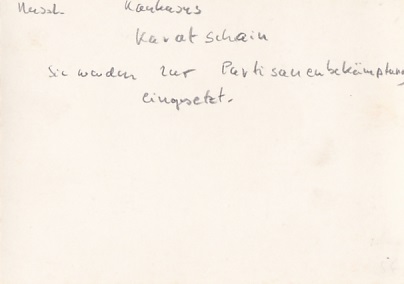 Kaukasus
Karatschain
Sie wurden zur Partisanenbekämpfung
eingesetzt.